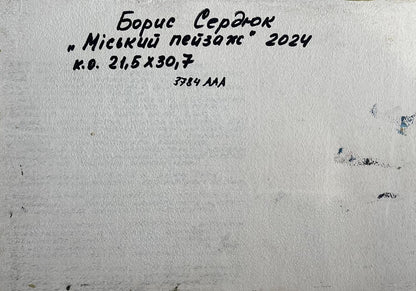 Борис Сердюк
„Міський пейзаж" 2024
к.о. 21,5х30,7
3784 ААА